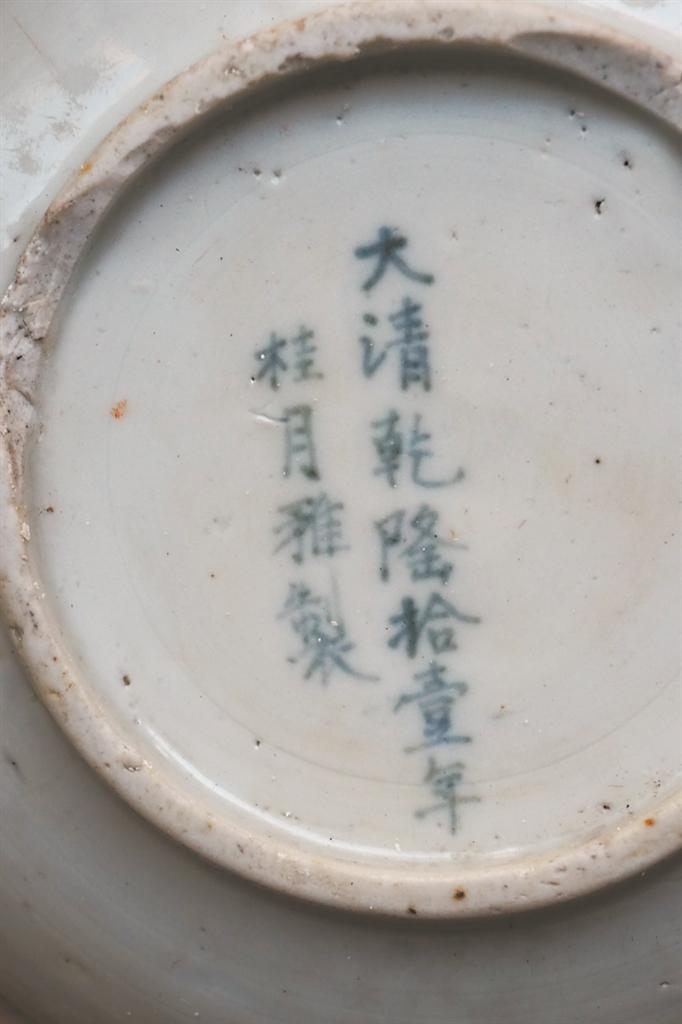 大清乾隆拾壹年
桂月雅製